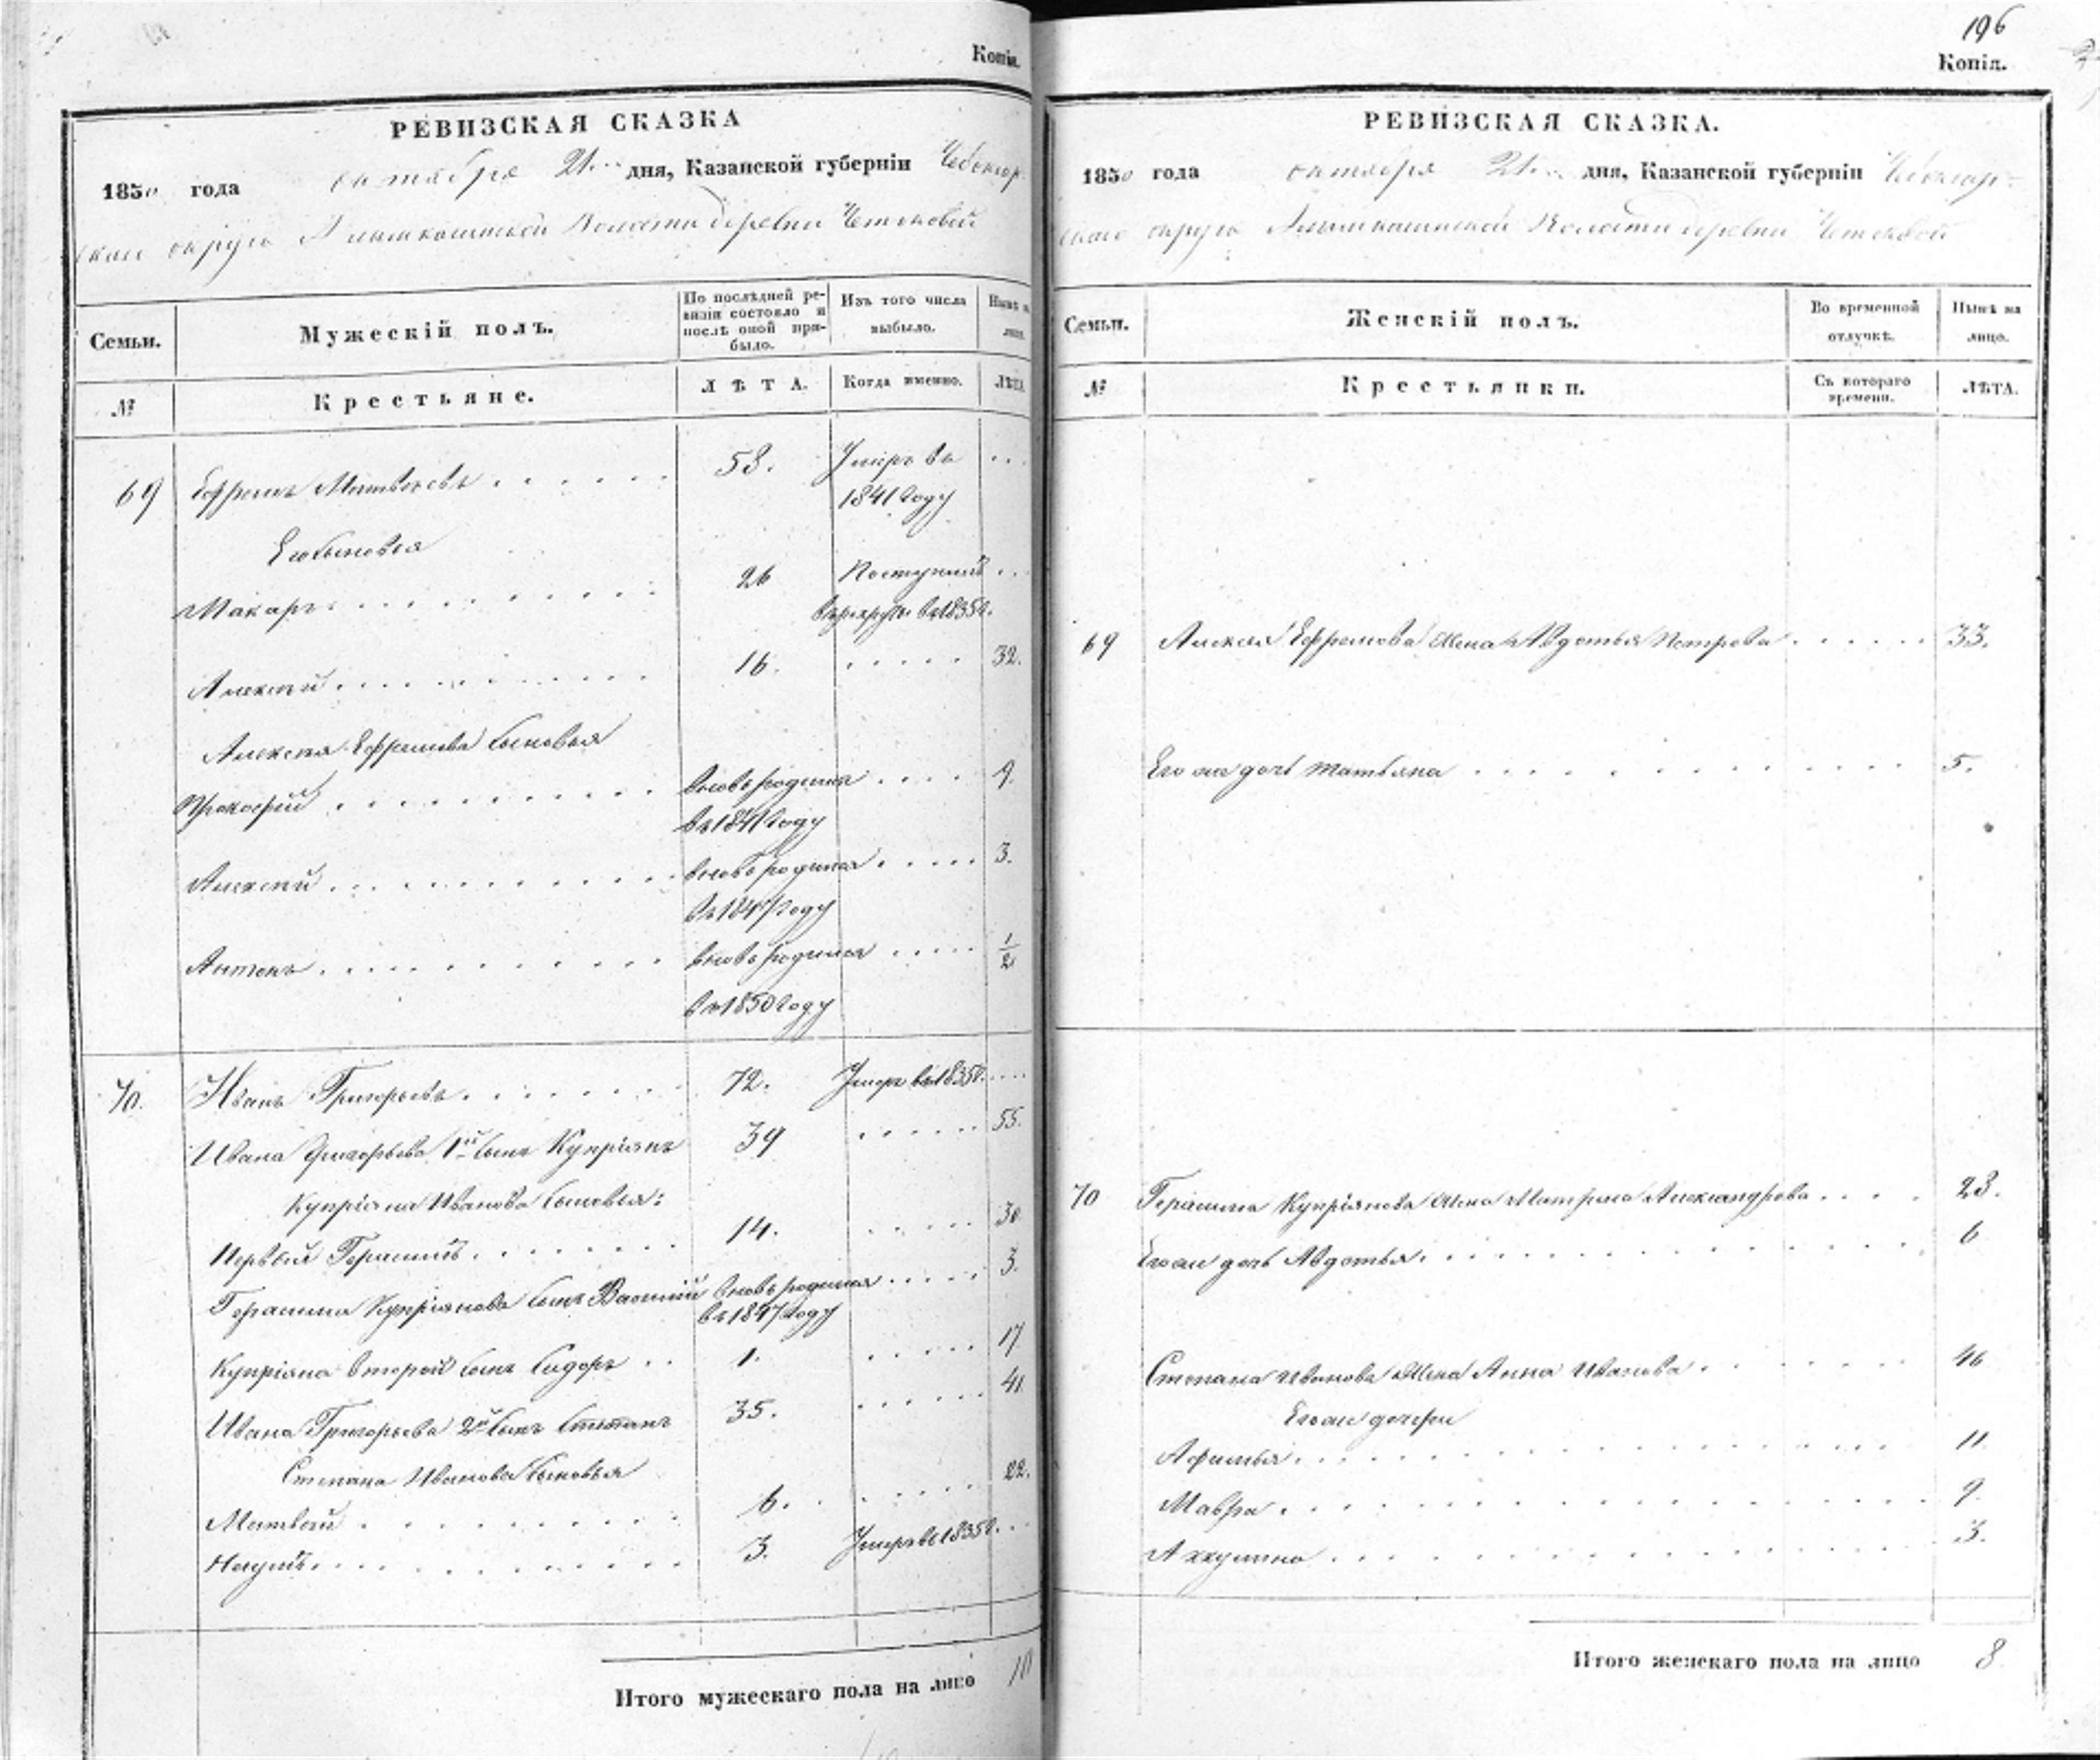 Копія.
РЕВИЗСКАЯ СКАЗКА
1850 года октября 21 дня, Казанской губерніи Чебоксар-
скаго округа волости деревни
Семьи.
Мужескій полъ.
По послѣдней ре-
визіи состояло и
послѣ оной при-
было.
Изъ того числа
выбыло.
Нынѣ на
лицо.
№
Крестьяне.
ЛѢТА.
Когда именно.
ЛѢТА.
69 Ефремъ Матвѣевъ . . . . . . 53. Умеръ въ . . .
1841 году
Его сыновья
Макаръ . . . . . . . . . 26 Поступилъ . .
в рекруты въ 1835 г.
Алексѣй . . . . . . . . . 16. . . . . . 32.
Алексѣя Ефремова сыновья
Прокофій . . . . . . . . . вновь родился . . . . 9.
въ 1841 году
Алексѣй . . . . . . . . . вновь родился . . . . . 3.
въ 1847 году
Антонъ . . . . . . . . . вновь родился . . . . . 1/2
въ 1850 году
70. Иванъ Григорьевъ . . . . . . 72. Умеръ въ 1835 г. . . .
Ивана Григорьева 1й сынъ Купріянъ 39 . . . . . 55.
Купріяна Иванова сыновья:
Первый Герасимъ . . . . . . 14. . . . . . 30
Герасима Купріянова сынъ Василій вновь родился . . . . . 3.
въ 1847 году
Купріяна второй сынъ Сидоръ . . 1. . . . . . 17
Ивана Григорьева 2й сынъ Степанъ 35. . . . . . 41.
Степана Иванова сыновья
Матвѣй . . . . . . . . 6. . . . . . . 22.
Наумъ . . . . . . . . 3. Умеръ въ 1835 г. . .
Итого мужескаго пола на лицо 10
196
Копія.
РЕВИЗСКАЯ СКАЗКА.
1850 года октября 21 дня, Казанской губерніи Чебоксар-
скаго округа волости деревни
Семьи.
Женскій полъ.
Во временной
отлучкѣ.
Нынѣ на
лицо.
№
Крестьянки.
Съ котораго
времени.
ЛѢТА.
69 Алексѣя Ефремова жена Авдотья Петрова . . . . . 33.
Его же дочь Татьяна . . . . . . . . . . 5.
70 Герасима Купріянова жена Матрена Александрова . . . . 23.
Его же дочь Авдотья . . . . . . . . . . . 6
Степана Иванова жена Анна Иванова . . . . . . 46
Его же дочери
Афимья . . . . . . . . . . . . . 11.
Мавра . . . . . . . . . . . . . . 9.
Аккулина . . . . . . . . . . . . . 3.
Итого женскаго пола на лицо 8